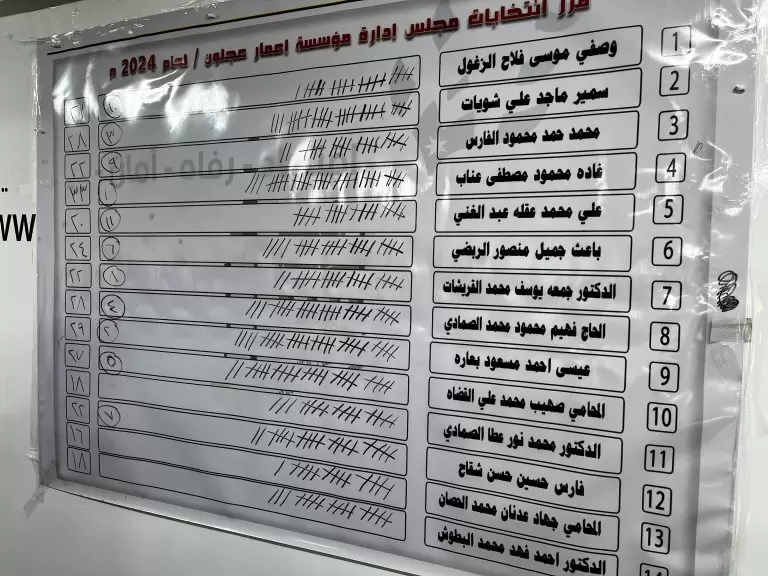 فرز انتخابات مجلس إدارة مؤسسة إعمار عجلون / لعام 2024 م
1 وصفي موسى فلاح الزغول ٢٦
2 سمير ماجد علي شويات ٣ ٢٨
3 محمد حمد محمود الفارس ٩ ٢٢
4 غاده محمود مصطفى عناب ١ ٣٣
5 علي محمد عقله عبد الغني ١١ ٢٠
6 باعث جميل منصور الربضي ٦ ٢٤
7 الدكتور جمعه يوسف محمد القريشات ٢٢
8 الحاج فهيم محمود محمد الصمادي ٤ ٢٨
9 عيسى احمد مسعود بعاره ٢ ٢٩
10 المحامي صهيب محمد علي القضاه ٥ ٢٧
11 الدكتور محمد نور عطا الصمادي ١٨
12 فارس حسين حسن شقاح ٧ ٢٢
13 المحامي جهاد عدنان محمد الحصان ١٦
14 الدكتور احمد فهد محمد البطوش ١٨
- رفاه - أمان
WW